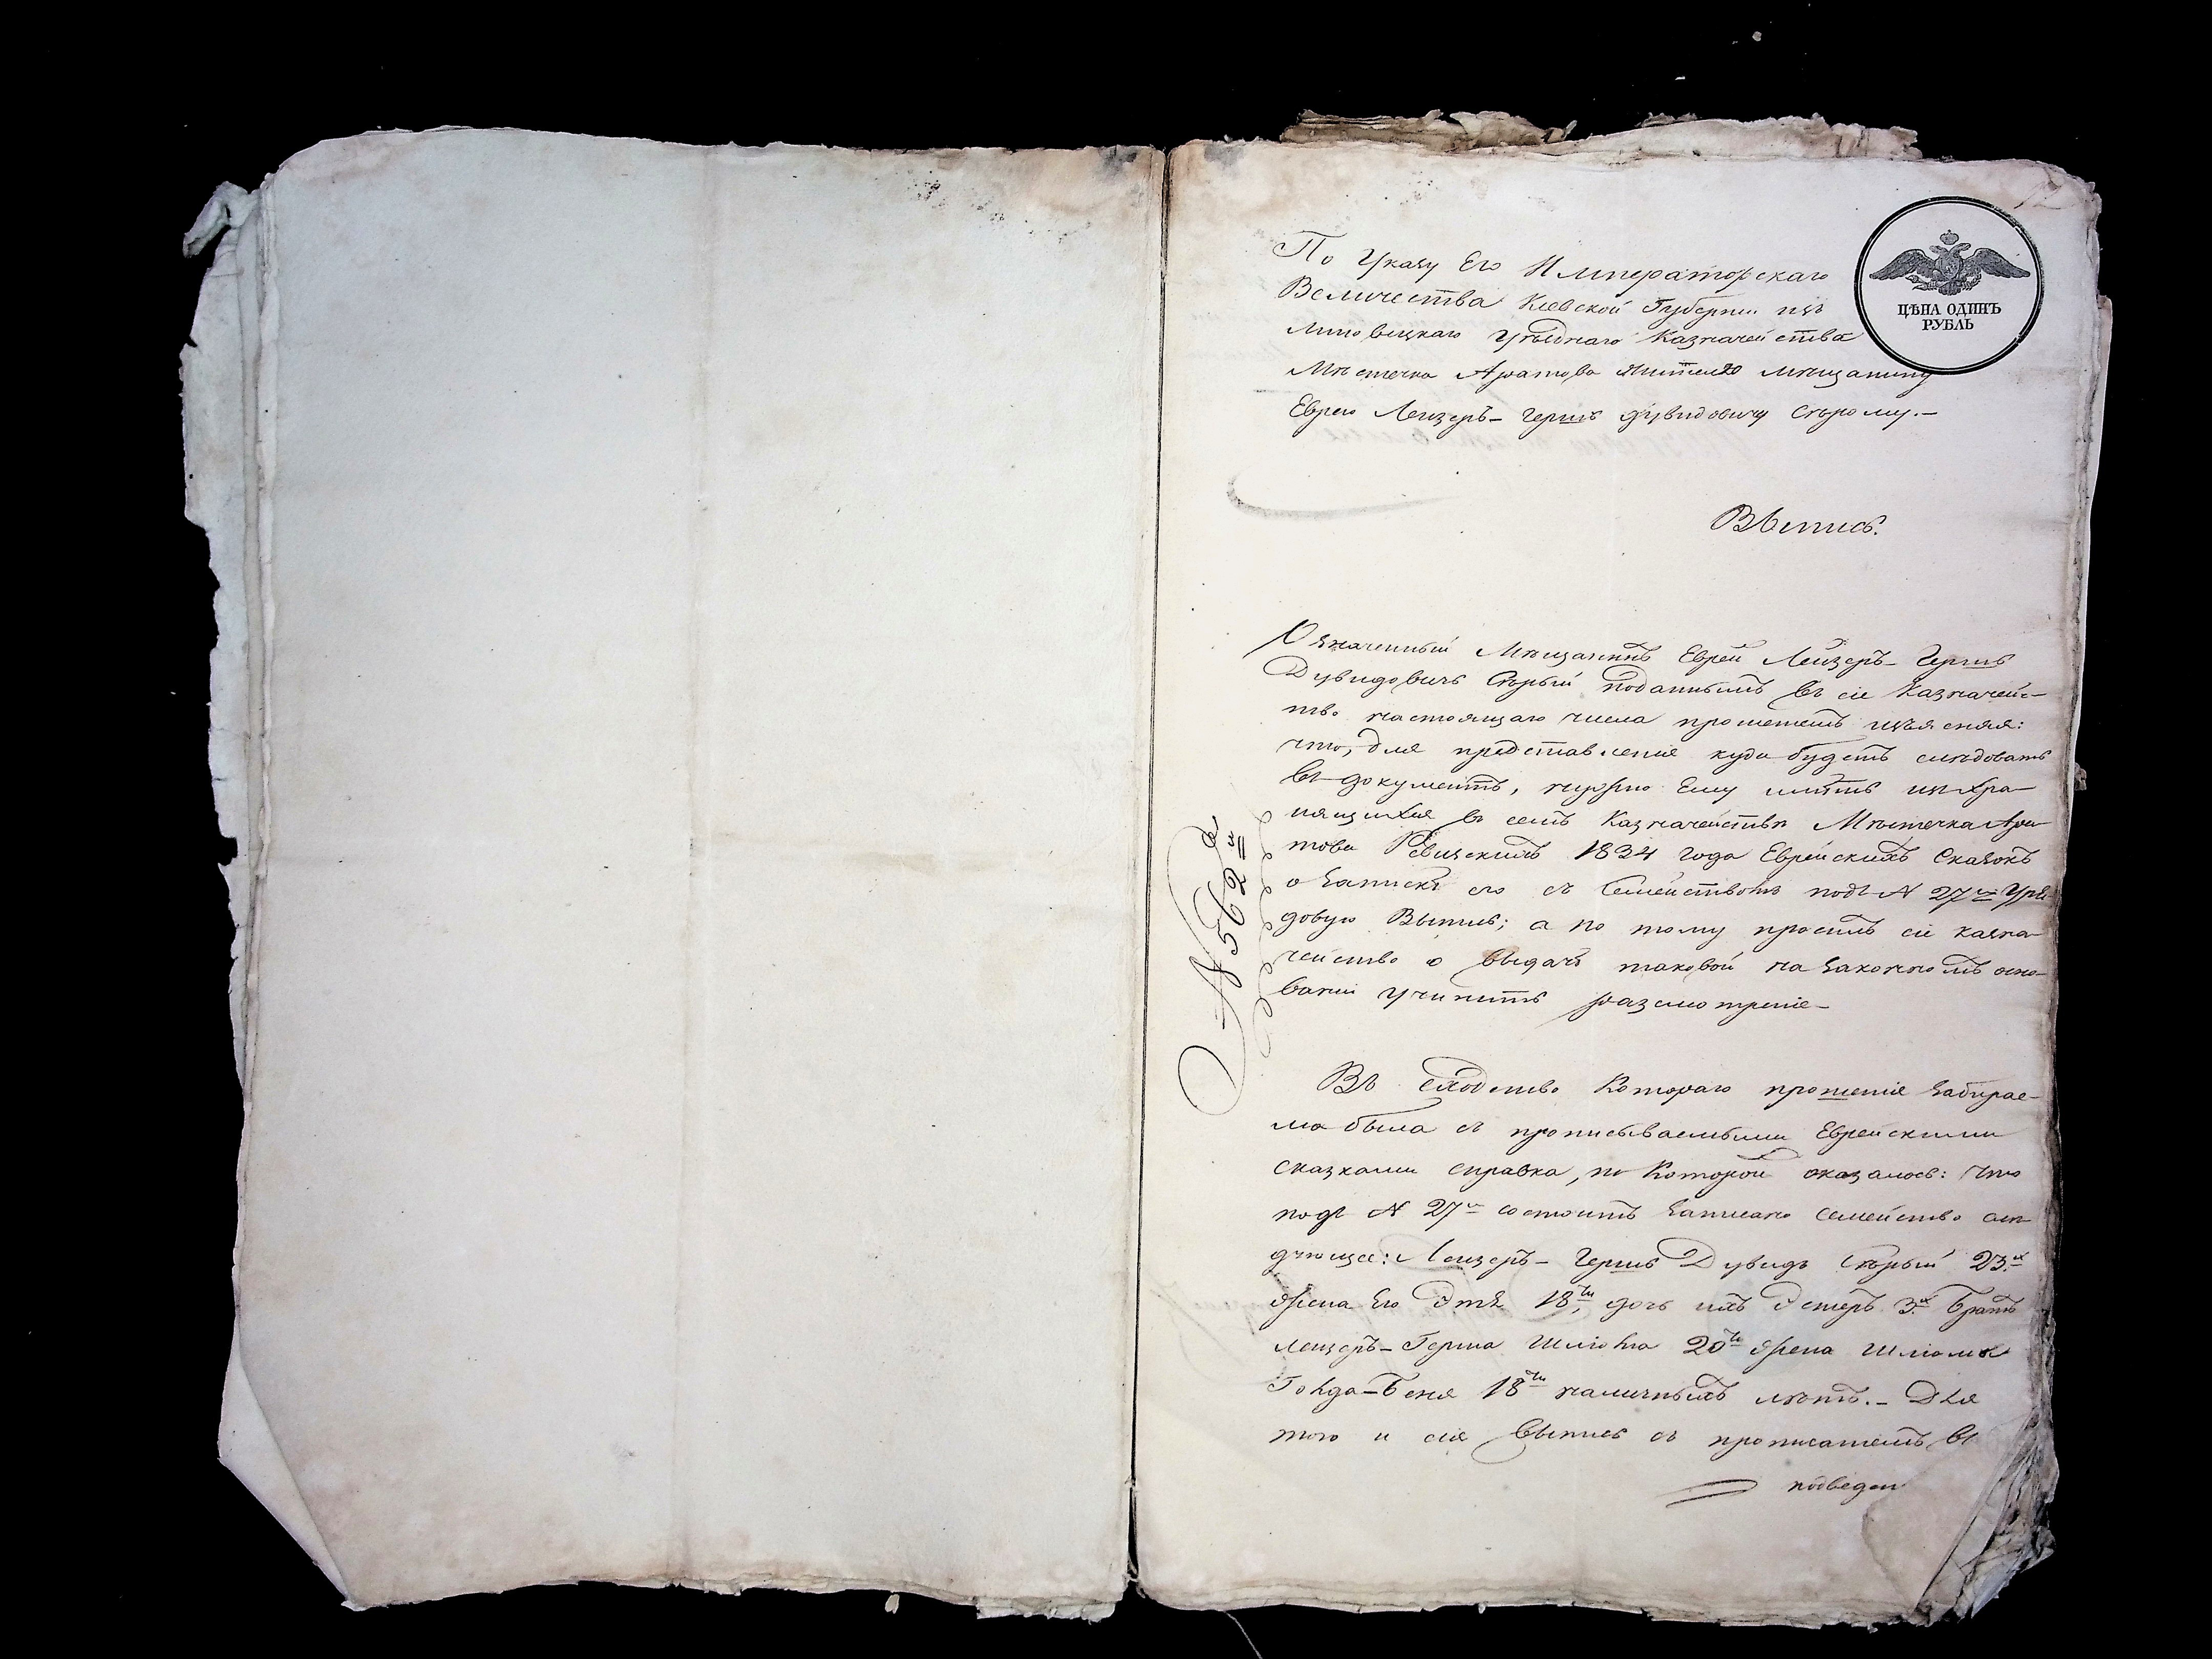 12
ЦѢНА ОДИНЪ
РУБЛЬ
По Указу Его Императорскаго
Величества Кіевской Губерніи изъ
Липовецкаго Уѣзднаго Казначейства
Мѣстечка Аратова жителю мѣщанину
Еврею Лейзеръ-Гершъ Дувидовичу Сѣрому.-
Выпись.
Означенный Мѣщанинъ Еврей Лейзеръ-Гершъ
Дувидовичъ Сѣрый поданнымъ въ сіе Казначейс-
тво настоящаго числа прошеніемъ изъясняя:
что, для представленія куда будетъ слѣдовать
въ документъ, нужно Ему имѣть изъ хра-
нящихся въ семъ Казначействѣ Мѣстечка Ара-
това Ревизскихъ 1834 года Еврейскихъ Сказокъ
о запискѣ его съ Семействомъ подъ N 27м Уря-
довую Выпись; а по тому просилъ сіе казна-
чейство о выдачѣ таковой на законномъ осно-
ваніи учинить разсмотреніе-
N 562й
Въ сходство Котораго прошенія забирае-
ма была съ прописываемыми Еврейскими
сказками справка, по Которой оказалось: что
подъ N 27м состоитъ записано семейство слѣ-
дующее: Лейзеръ-Гершъ Дувидъ Сѣрый 23х
жена Его Этя 18ти, дочь ихъ Эстеръ 3х Братъ
Лейзеръ-Герша 20ти жена
18ти наличныхъ лѣтъ.- Для
того и сія Выпись съ прописаніемъ въ
подведен